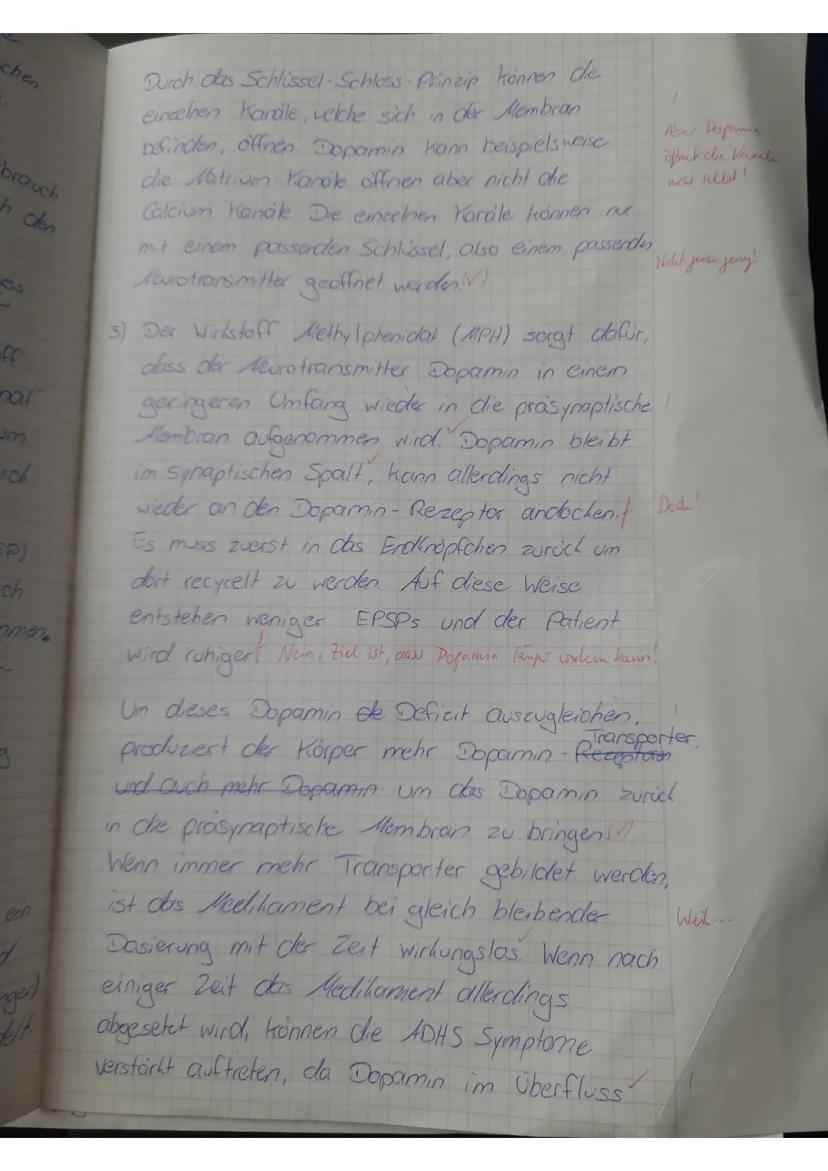 Durch das Schlüssel-Schloss-Prinzip können die
einzelnen Kanäle, welche sich in der Membran
befinden, öffnen. Dopamin kann beispielsweise
die Natrium-Kanäle öffnen aber nicht die
Calcium Kanäle. Die einzelnen Kanäle können nur
mit einem passenden Schlüssel, also einem passenden
Neurotransmitter geöffnet werden. (✓)
! Aber Dopamin
öffnet die Kanäle
nicht selbst!
Nicht genau genug!
3) Der Wirkstoff Methylphenidat (MPH) sorgt dafür,
dass der Neurotransmitter Dopamin in einem
geringeren Umfang wieder in die präsynaptische
Membran aufgenommen wird. ✓ Dopamin bleibt
im synaptischen Spalt ✓, kann allerdings nicht
wieder an den Dopamin-Rezeptor andocken. f Doch!
Es muss zuerst in das Endknöpfchen zurück um
dort recycelt zu werden. Auf diese Weise
entstehen weniger EPSPs und der Patient
wird ruhiger. f Nein, Ziel ist, dass Dopamin länger wirken kann!
Um dieses Dopamin de Defizit auszugleichen,
produziert der Körper mehr Dopamin-Rezeptoren Transporter,
und auch mehr Dopamin um das Dopamin zurück
in die präsynaptische Membran zu bringen. (✓)
Wenn immer mehr Transporter gebildet werden,
ist das Medikament bei gleich bleibender Weil...
Dosierung mit der Zeit wirkungslos. ✓ Wenn nach
einiger Zeit das Medikament allerdings
abgesetzt wird, können die ADHS Symptome
verstärkt auftreten, da Dopamin im Überfluss ✓
chen
brauch
h den
ff
nal
um
rch
SP)
ch
mmen.
g
een
d
nger)